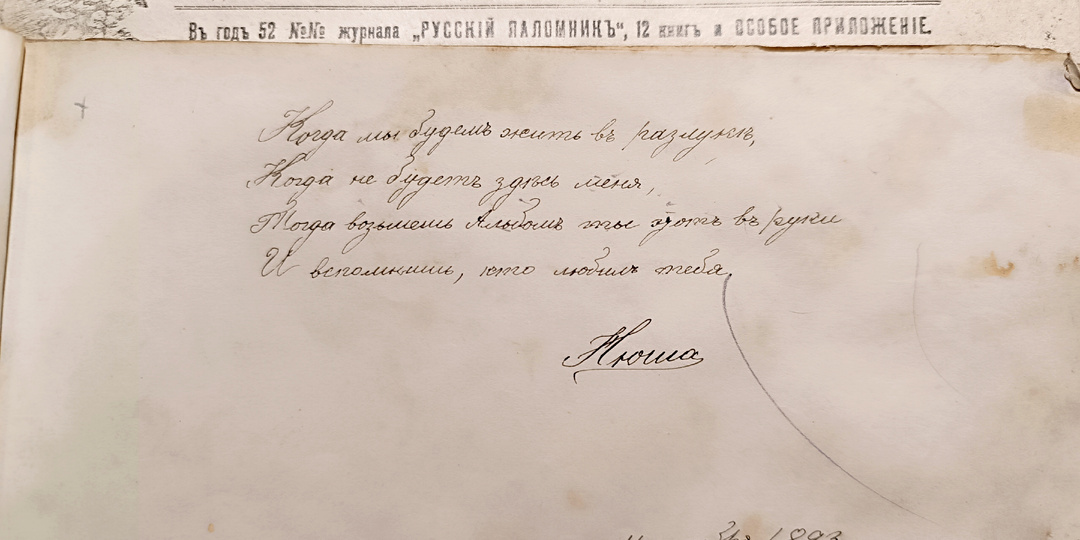 Въ годъ 52 №№ журнала „РУССКІЙ ПАЛОМНИКЪ“, 12 книгъ и ОСОБОЕ ПРИЛОЖЕНІЕ.
Когда мы будемъ жить въ разлукѣ,
Когда не будетъ здѣсь меня,
Тогда возьмешь Альбомъ ты этотъ въ руки
И вспомнишь, кто любилъ тебя.
Нюша
1893